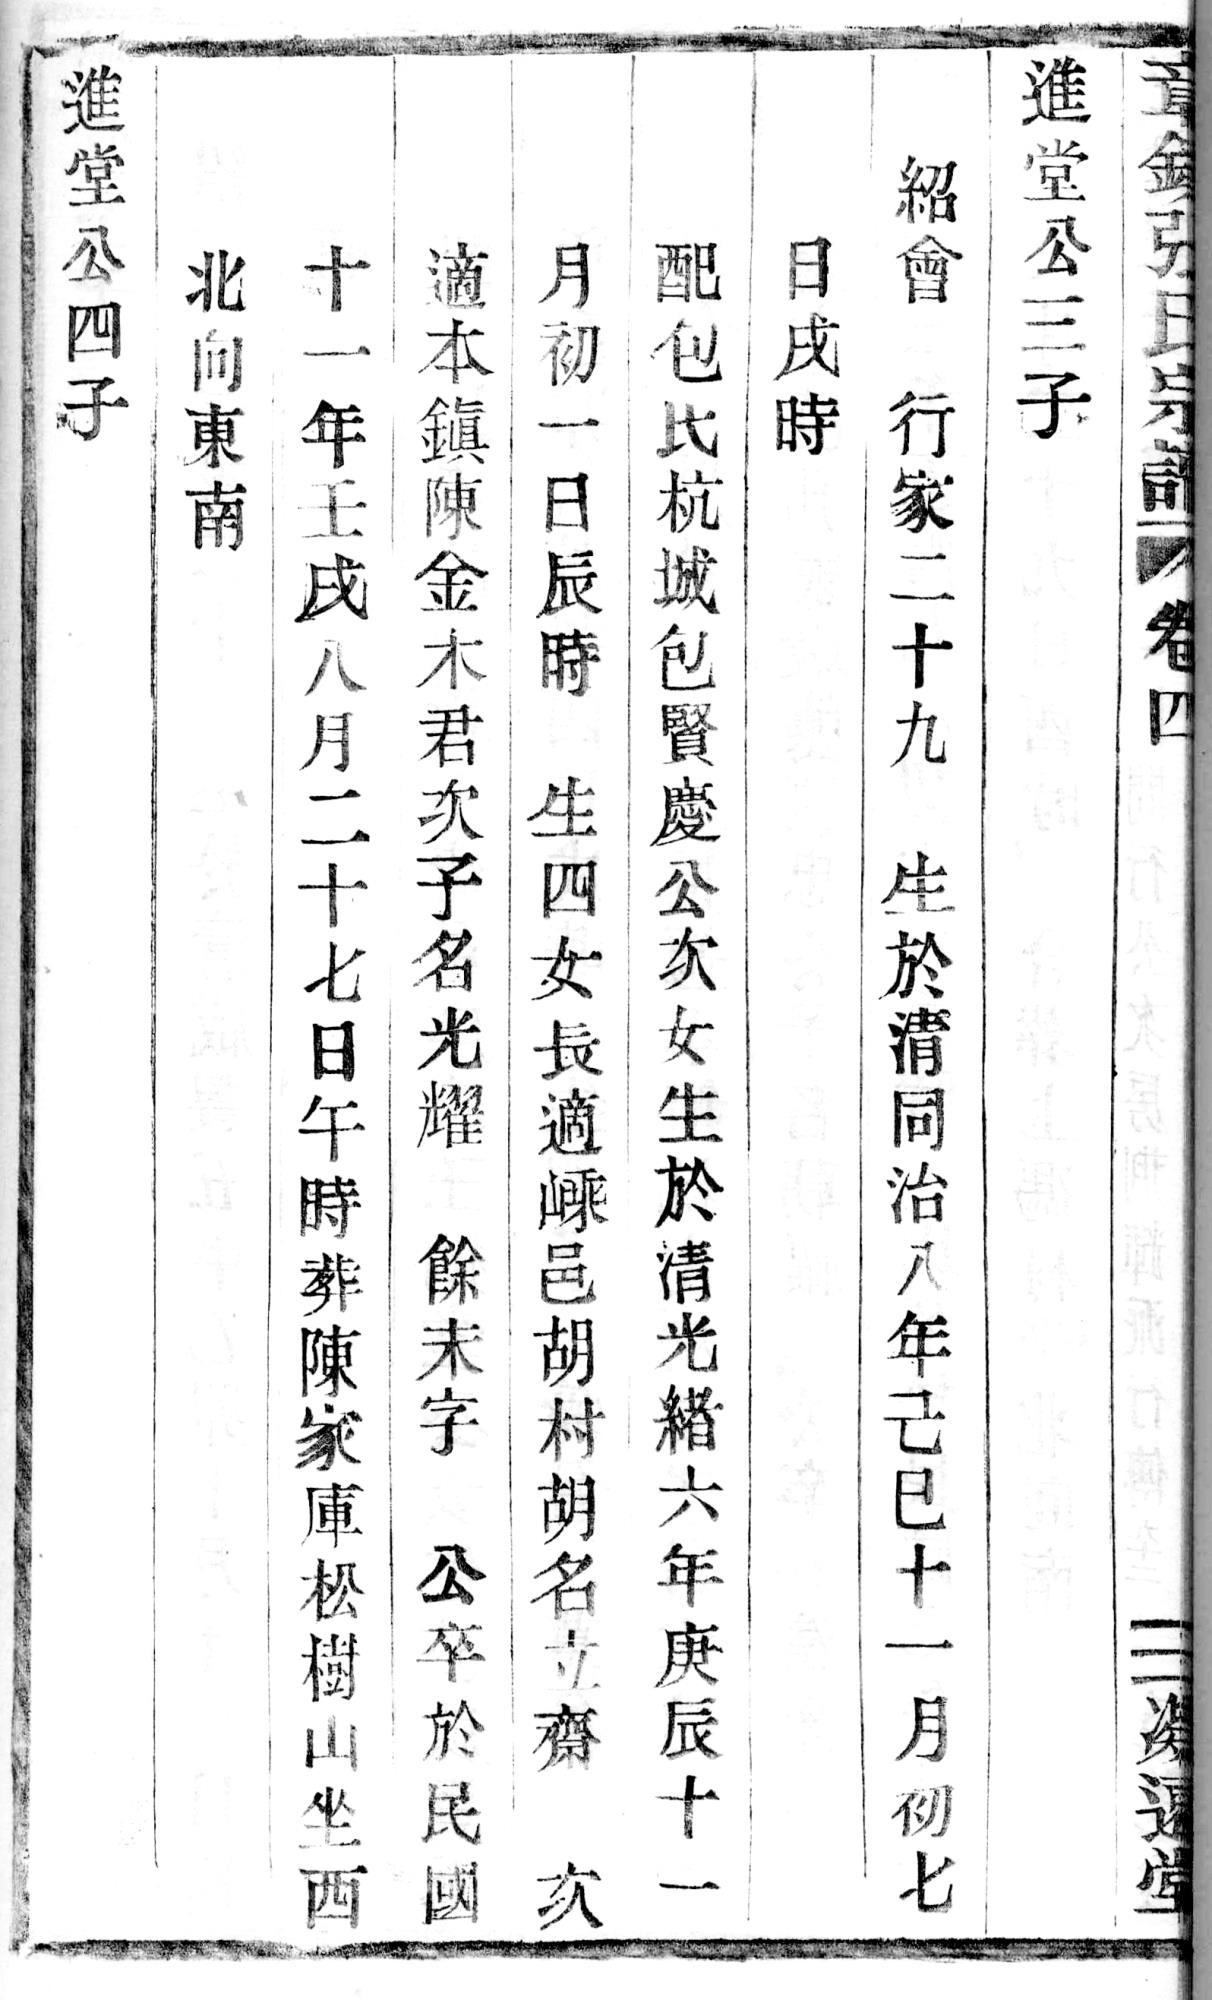 章鎮張氏宗譜 卷四 二 遠堂
進堂公三子
紹會 行家二十九 生於清同治八年己巳十一月初七
日戌時
配包氏杭城包賢慶公次女生於清光緒六年庚辰十一
月初一日辰時 生四女長適嵊邑胡村胡名立齋 次
適本鎭陳金木君次子名光耀 餘未字 公卒於民國
十一年壬戌八月二十七日午時葬陳家庫松樹山坐西
北向東南
進堂公四子